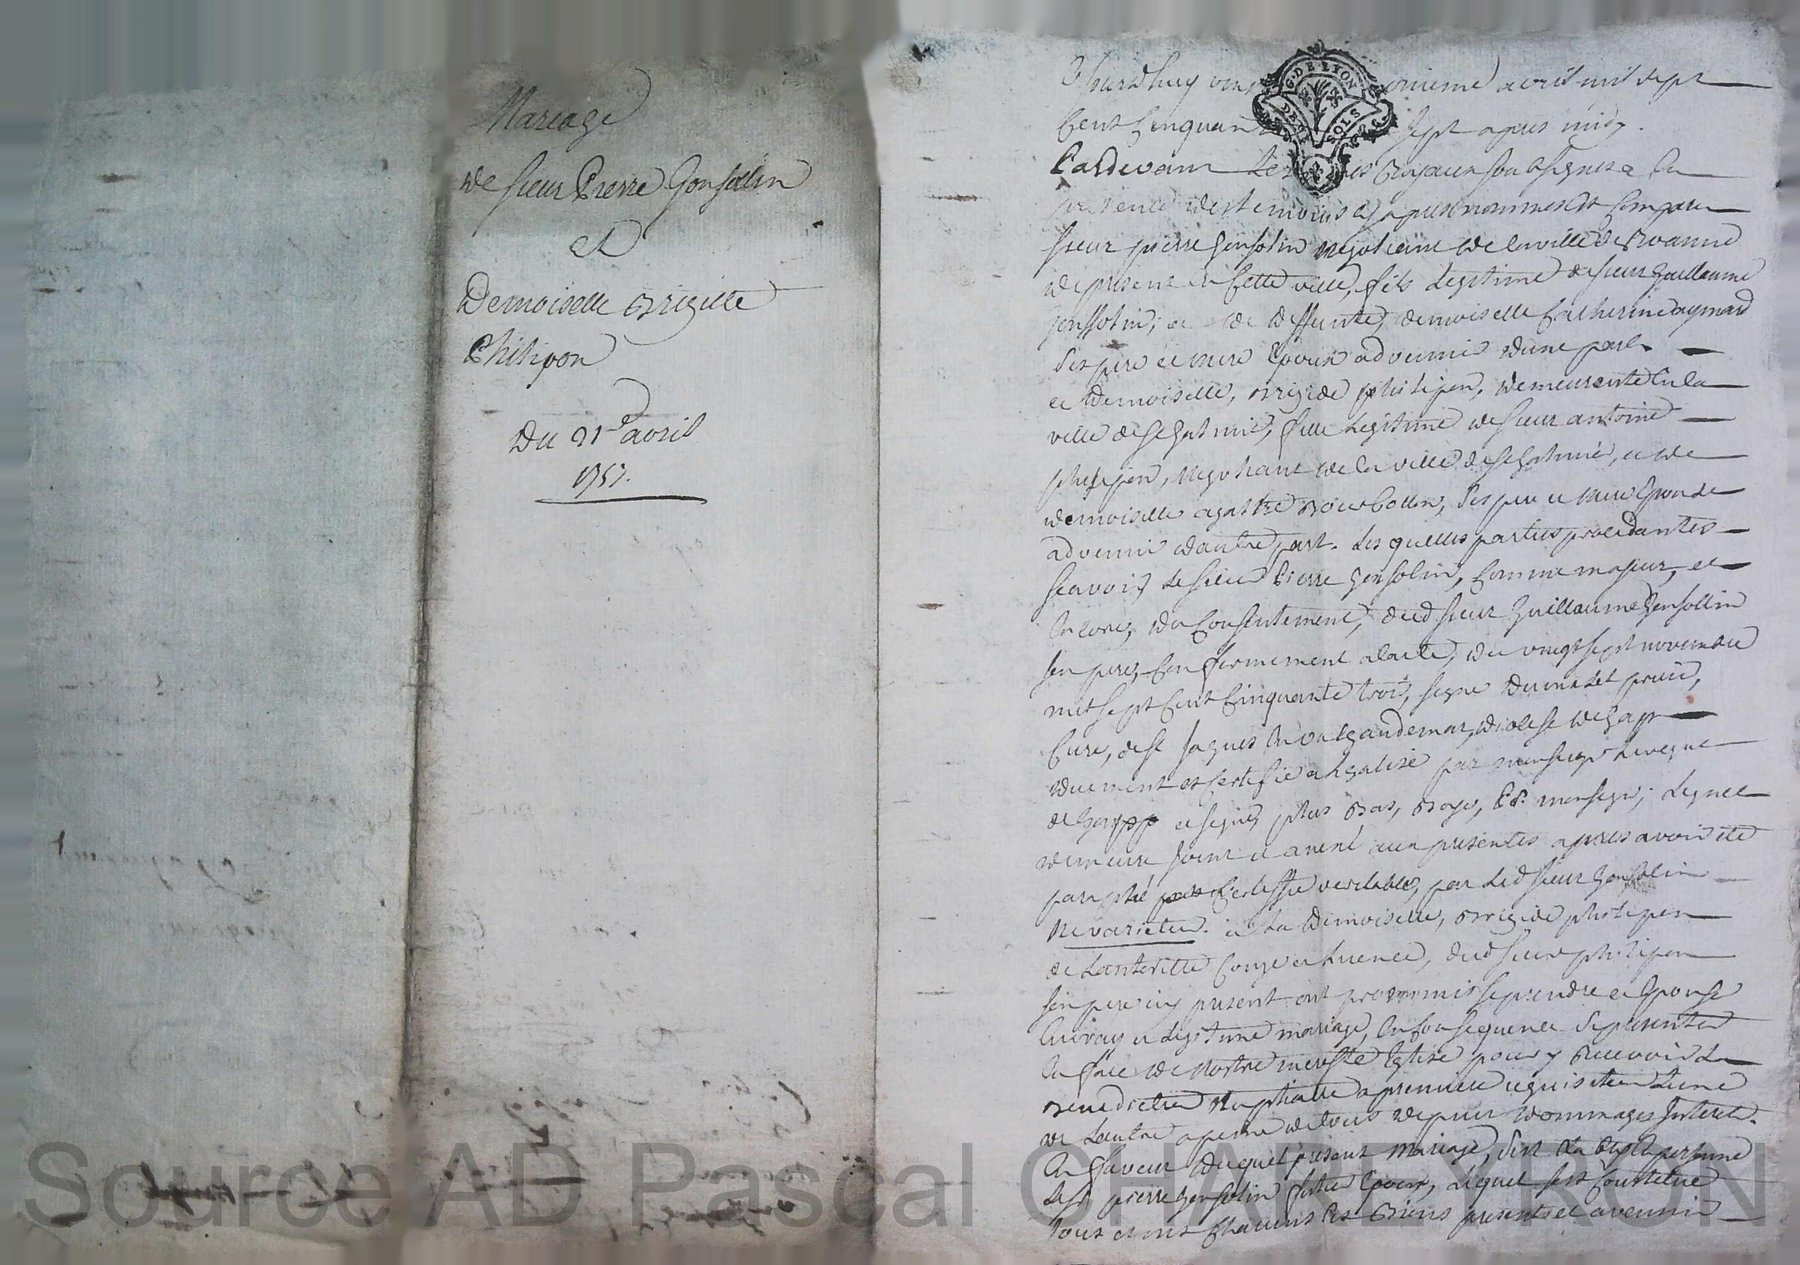 Mariage
de sieur Pierre Gonsolin
et
Demoiselle Brigitte
Philipon
Du 21e avril
1757.
G. DE LYON
DEUX SOLS
avril mil sept
cent cinquan sept apres midy.
Pardevant les royaux soubsignes & en
presence des temoins cy apres nommes est comparu
sieur pierre gonsolin negotiant de la ville de Roanne
de present en cette ville, fils legitime de sieur guillaume
gonssolin, et de deffunte demoiselle Catherine aymard
ses pere et mere Epoux advenir d'une part.
et demoiselle brigide philipon, demeurante en la
ville de st galmier, fille legitime de sieur antoine
philipon, negotiant de la ville de st galmier, et de
demoiselle agathe ses pere et mere Epouse
advenir d'autre part. Lesquelles parties procedantes
scavoir le sieur Pierre gonsolin, comme majeur, et
encore, du consentement, dud sieur guillaume gonsollin
son pere, conformement a l'acte, du vingt sept novembre
mil sept cent cinquante trois, signe
Curé, de st jaques en valgaudemar, diocese de gapp
duement certifie et legalisé par monseigr Leveque
de gapp et signé, plus bas, par monseigr; lequel
demeure joint et anexé aux presentes apres avoir été
paraphé certiffié veritable, par led sieur gonsolin
ne varietur. et la demoiselle, brigide philipon
de l'autorité congé et licence, dud sieur philipon
son pere icy present ont promis se prendre et Epouser
en vray et legitime mariage, en consequence se presenter
en face de nostre mere ste Eglise pour y recevoir la
benediction nuptialle a premiere requisition l'une
de l'autre a peine de tous depens dommages Interet.
En faveur duquel present mariage, s'est
led pierre gonsolin futur Epoux, lequel s'est constitué
tous et un chacuns ses biens presents et avenir
Source AD Pascal CHAPEYRON